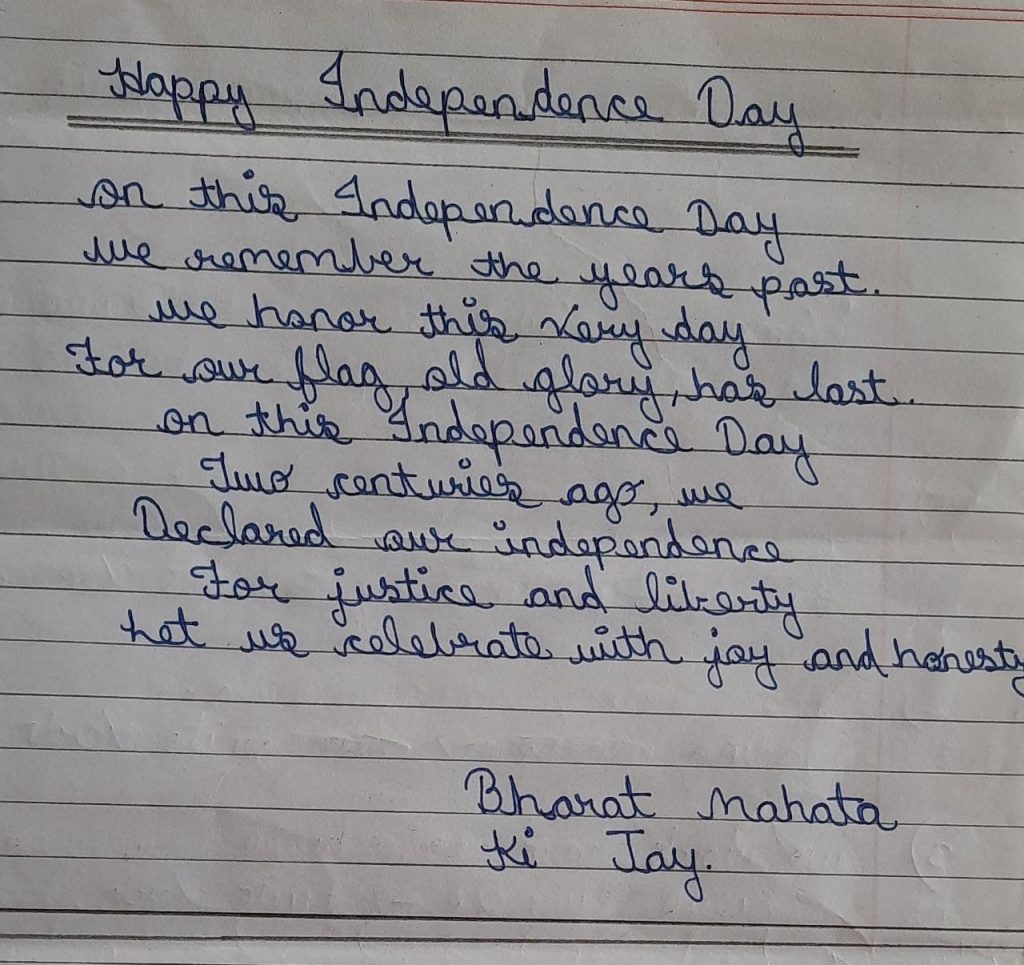 Happy Independence Day
on this Independence Day
we remember the years past.
we honor this very day
For our flag, old glory, has last.
on this Independence Day
Two centuries ago, we
Declared our independence
For justice and liberty
let us celebrate with joy and honesty
Bharat Mahata
Ki Jay.